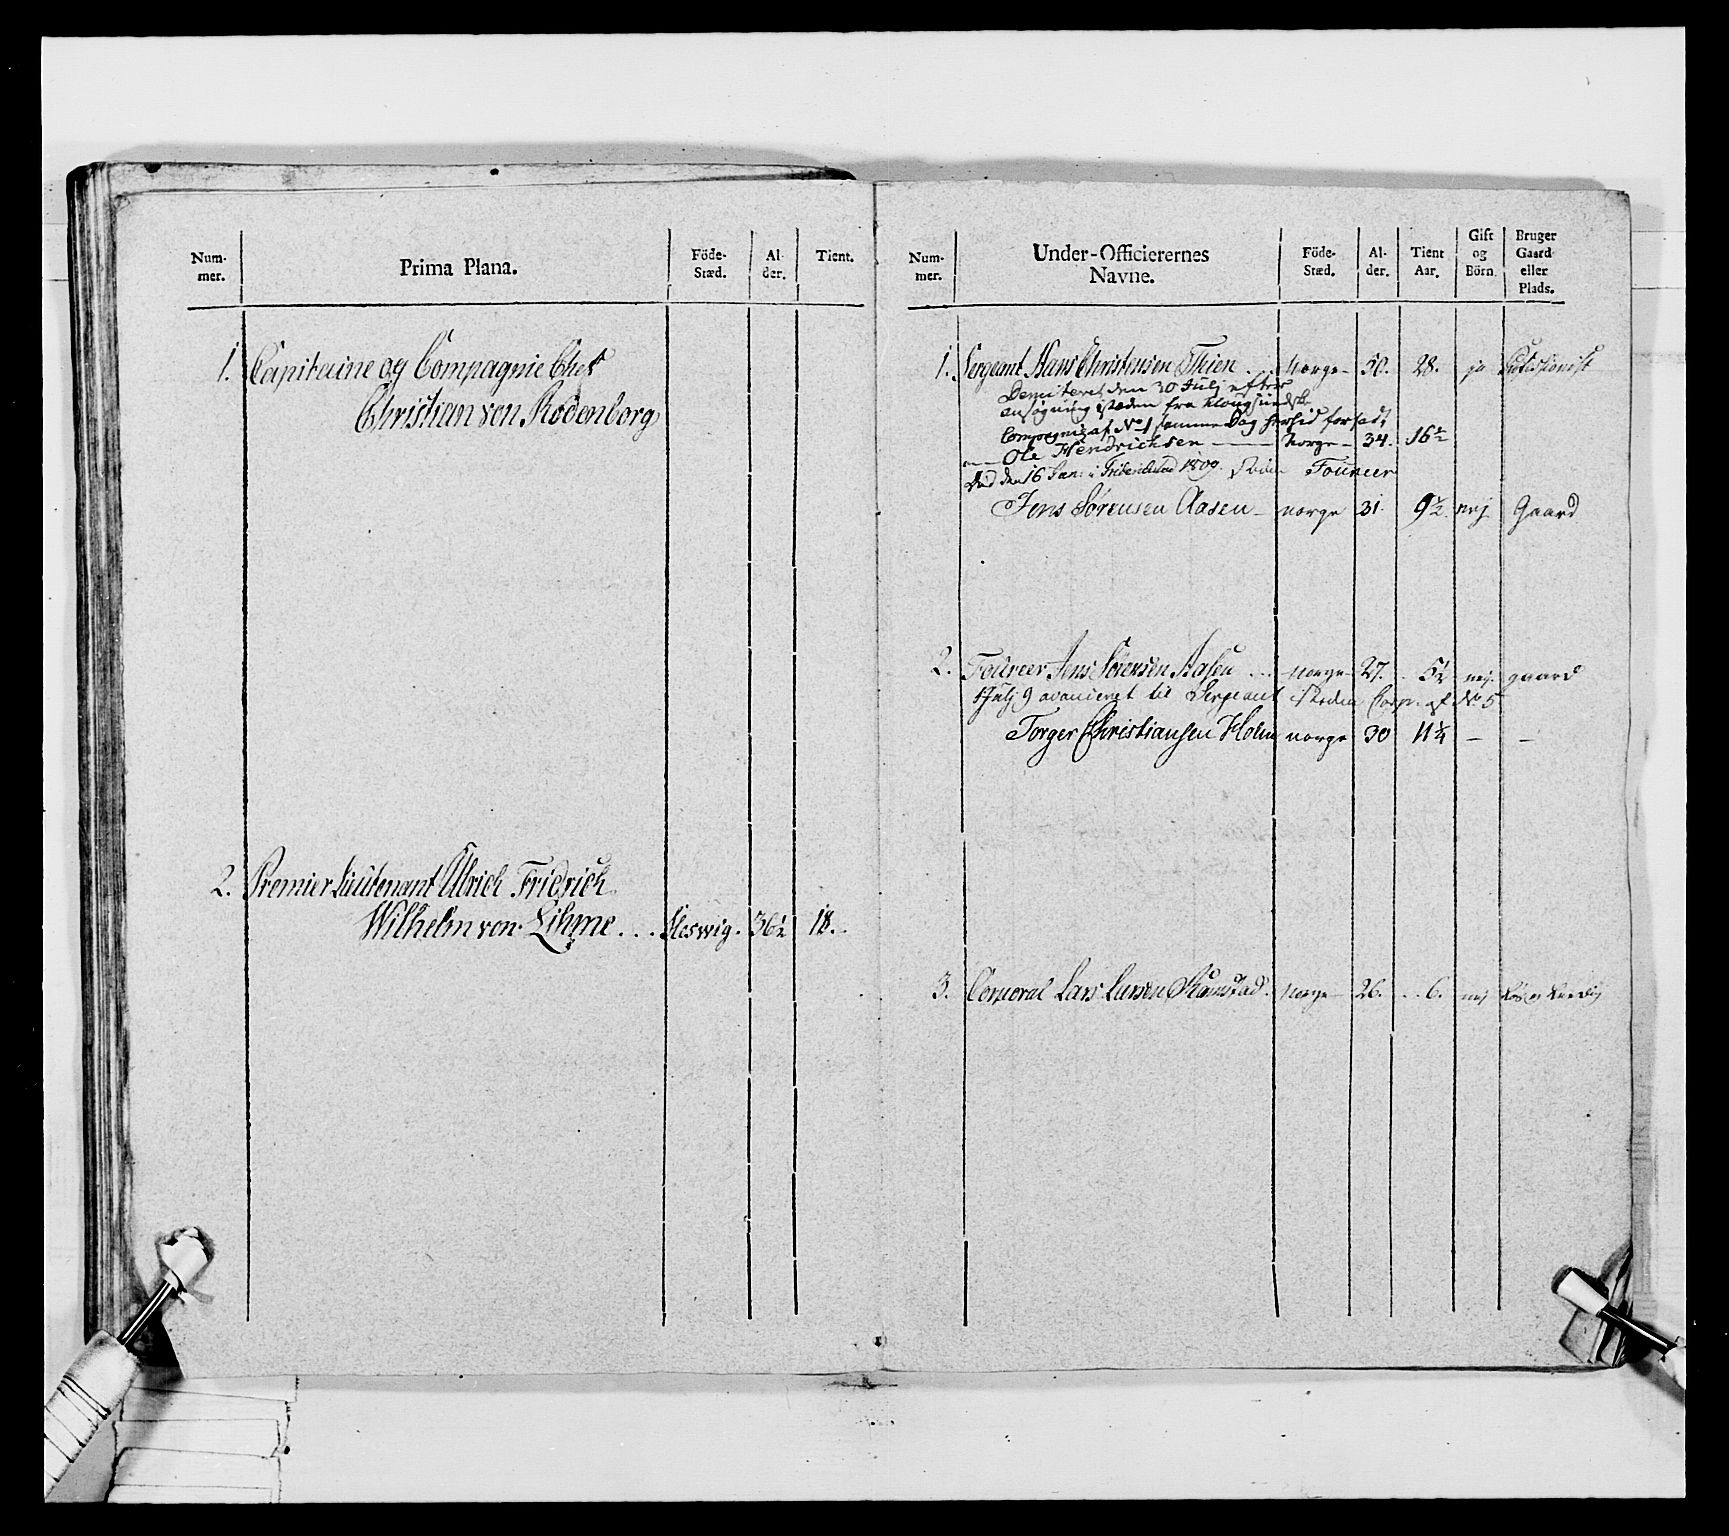 Num-
mer.
Prima Plana.
Föde-
Stæd.
Al-
der.
Tient.
1. Capitaine og Compagnie Chef
Christian von Rodenborg
2. Premier Lieutenant Ulrich Fridrich
Wilhelm von Lihme . . . Sleswig. 36½ 18.
Num-
mer.
Under-Officierernes
Navne.
Föde-
Stæd.
Al-
der.
Tient
Aar.
Gift
og
Börn.
Bruger
Gaard
eller
Plads.
1. Sergeant Hans Christensen Thien . . . Norge 50. 28. ja
Demiteret den 30 Julj efter
ansøgning istæden fra
Compagnie af No 1 samme Dag hertid forsadt
Ole Hendrichsen Norge 34. 16½
Død den 16 Jan: i 1809. Foureer
Jens Sørensen Aasen norge 31. 9½ nej Gaard
2. Foureer Jens Sørensen Aasen . . . Norge 27. 5½ nej. gaard
Julj 9 avancieret til Sergeant isteden Corp. af No 5
Torger Christiansen Holm norge 30 11¼ — —
3. Corporal Lars Larsen Norge 26. . . 6. nej